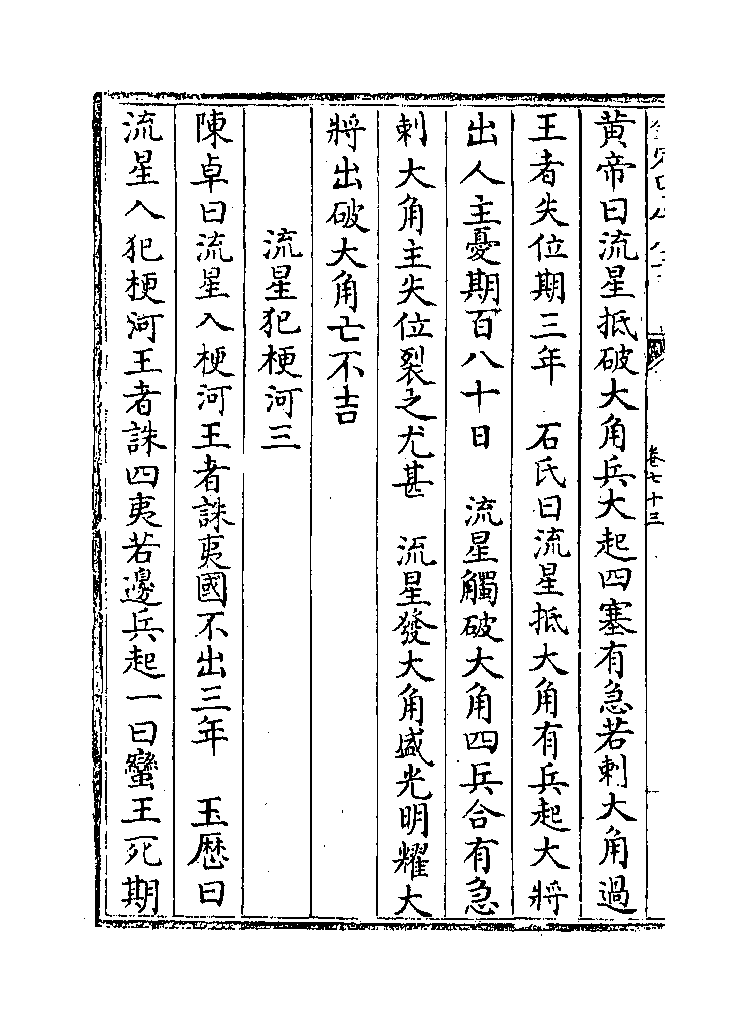 卷七十三
黄帝曰流星抵破大角兵大起四塞有急若刺大角過
王者失位期三年　石氏曰流星抵大角有兵起大將
出人主憂期百八十日　流星觸破大角四兵合有急
刺大角主失位裂之尤甚　流星發大角盛光明耀大
將出破大角亡不吉
流星犯梗河三
陳卓曰流星入梗河王者誅夷國不出三年　玉厯曰
流星入犯梗河王者誅四夷若邊兵起一曰蠻王死期